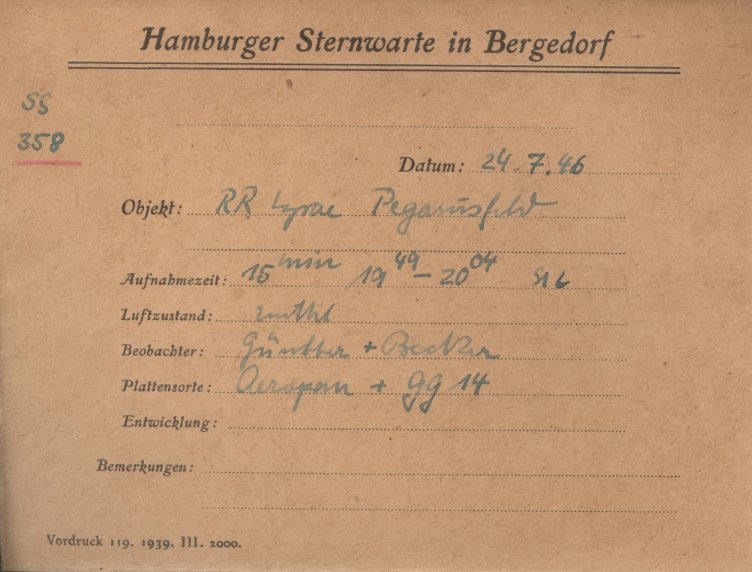 Hamburger Sternwarte in Bergedorf
358
Datum: 24.7.46
Objekt: RR Lyrae Pegasusfeld
Aufnahmezeit: 15 min 19 49 - 20 04
Luftzustand: mittel
Beobachter: Günther + Becker
Plattensorte: Aeropan + GG 14
Entwicklung:
Bemerkungen:
Vordruck 119. 1939. III. 2000.